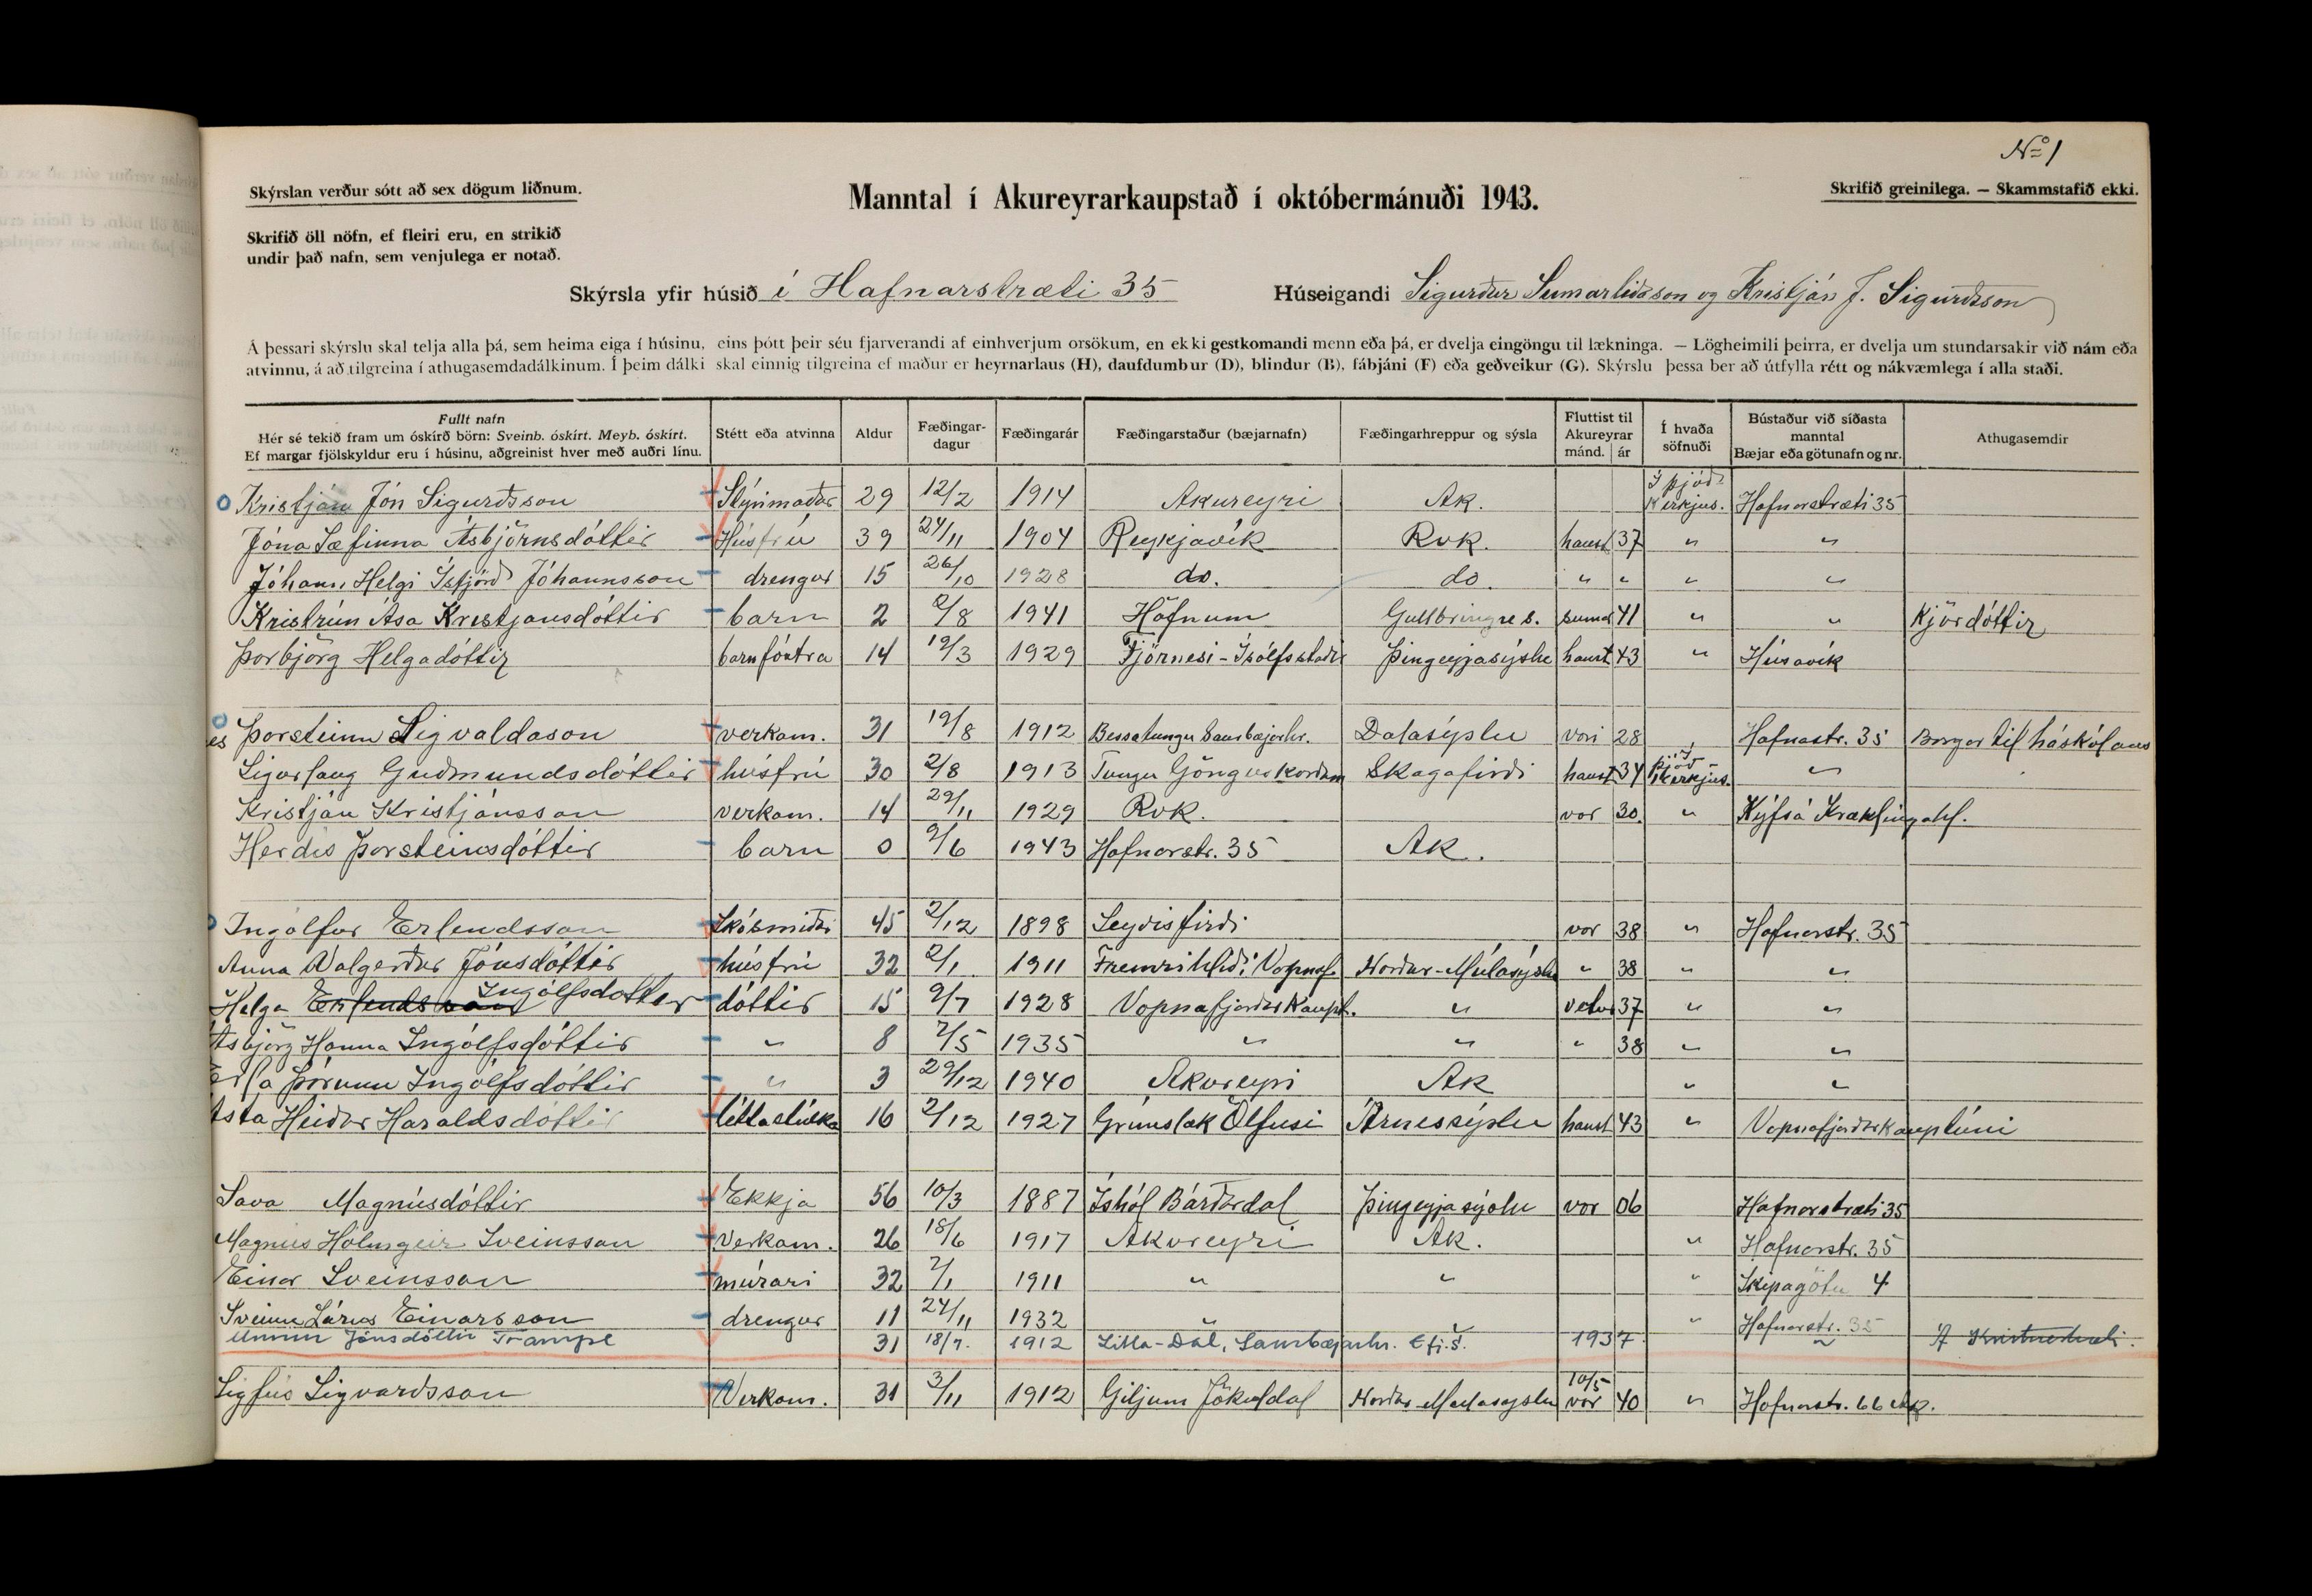 No 1
Skýrslan verður sótt að sex dögum liðnum.
Manntal í Akureyrarkaupstað í októbermánuði 1943.
Skrifið greinilega. — Skammstafið ekki.
Skrifið öll nöfn, ef fleiri eru, en strikið
undir það nafn, sem venjulega er notað.
Skýrsla yfir húsið í Hafnarstræti 35 Húseigandi Sigurður Sumarliðason og Kristján J. Sigurðsson
Á þessari skýrslu skal telja alla þá, sem heima eiga í húsinu, eins þótt þeir séu fjarverandi af einhverjum orsökum, en ekki gestkomandi menn eða þá, er dvelja eingöngu til lækninga. — Lögheimili þeirra, er dvelja um stundarsakir við nám eða
atvinnu, á að tilgreina í athugasemdadálkinum. Í þeim dálki skal einnig tilgreina ef maður er heyrnarlaus (H), daufdumbur (D), blindur (B), fábjáni (F) eða geðveikur (G). Skýrslu þessa ber að útfylla rétt og nákvæmlega í alla staði.
Fullt nafn
Hér sé tekið fram um óskírð börn: Sveinb. óskírt. Meyb. óskírt.
Ef margar fjölskyldur eru í húsinu, aðgreinist hver með auðri línu.
Stétt eða atvinna
Aldur
Fæðingar-
dagur
Fæðingarár
Fæðingarstaður (bæjarnafn)
Fæðingarhreppur og sýsla
Fluttist til
Akureyrar
mánd. ár
Í hvaða
söfnuði
Bústaður við síðasta
manntal
Bæjar eða götunafn og nr.
Athugasemdir
Kristján Jón Sigurðsson Stýrimaður 29 12/2 1914 Akureyri Ak. Í þjóð-kirkjus. Hafnarstræti 35
Jóna Sæfinna Ásbjörnsdóttir Húsfrú 39 24/11 1904 Reykjavík Rvk. haust 37 " "
Jóhann Helgi Ísfjörð Jóhannsson drengur 15 26/10 1928 do. do. " " " "
Kristrún Ása Kristjansdóttir barn 2 2/8 1941 Höfnum Gullbringus. sumar 41 " " Kjördóttir
Þorbjörg Helgadóttir barnfóstra 14 19/3 1929 Tjörnesi - Ísólfsstaðir Þingeyjasýslu haust 43 " Húsavík
Þorsteinn Sigvaldason verkam. 31 19/8 1912 Bessatungu Saurbæjarhr. Dalasýslu vori 28 Hafnastr. 35 Borgar til háskólans
Sigurlaug Guðmundsdóttir húsfrú 30 2/8 1913 Tungu Gönguskörðum Skagafirði haust 34 Í þjóðkirkjus. "
Kristján Kristjánsson verkam. 14 29/11 1929 Rvk. vor 30 " Kýfsá Kræklingahl.
Herdís Þorsteinsdóttir barn 0 9/6 1943 Hafnarstr. 35 Ak.
Ingólfur Erlendsson Skósmiður 45 2/12 1898 Seyðisfirði vor 38 " Hafnarstr. 35
Anna Valgerður Jónsdóttir húsfrú 32 2/1 1911 Fremrihlíð Vopnaf. Norður-Múlasýslu " 38 " "
Helga Ingólfsdóttir dóttir 15 9/7 1928 Vopnafjarðarkaupt. " vetur 37 " "
Ásbjörg Hanna Ingólfsdóttir " 8 7/5 1935 " " " 38 " "
Erla Þórunn Ingólfsdóttir " 3 29/12 1940 Akureyri Ak " "
Ásta Heiður Haraldsdóttir léttastúlka 16 2/12 1927 Grímslæk Ölfusi Árnessýslu haust 43 " Vopnafjarðarkauptúni
Sava Magnúsdóttir Ekkja 56 10/3 1887 Íshól Bárðardal Þingeyjasýslu vor 06 Hafnarstræti 35
Magnús Hólmgeir Sveinsson Verkam. 26 18/6 1917 Akureyri Ak. " Hafnarstr. 35
Einar Sveinsson múrari 32 7/1 1911 " " " Skipagötu 4
Sveinn Lárus Einarsson drengur 11 24/11 1932 " " " Hafnarstr. 35
Unnur Jónsdóttir Trampe 31 18/7. 1912 Litla-Dal, Saurbæjarhr. Efj.s. 1937 "
Sigfús Sigvarðsson Verkam. 31 3/11 1912 Giljum Jökuldal Norður-Mulasýslu 10/5 vor 40 " Hafnarstr. 66 Ak.